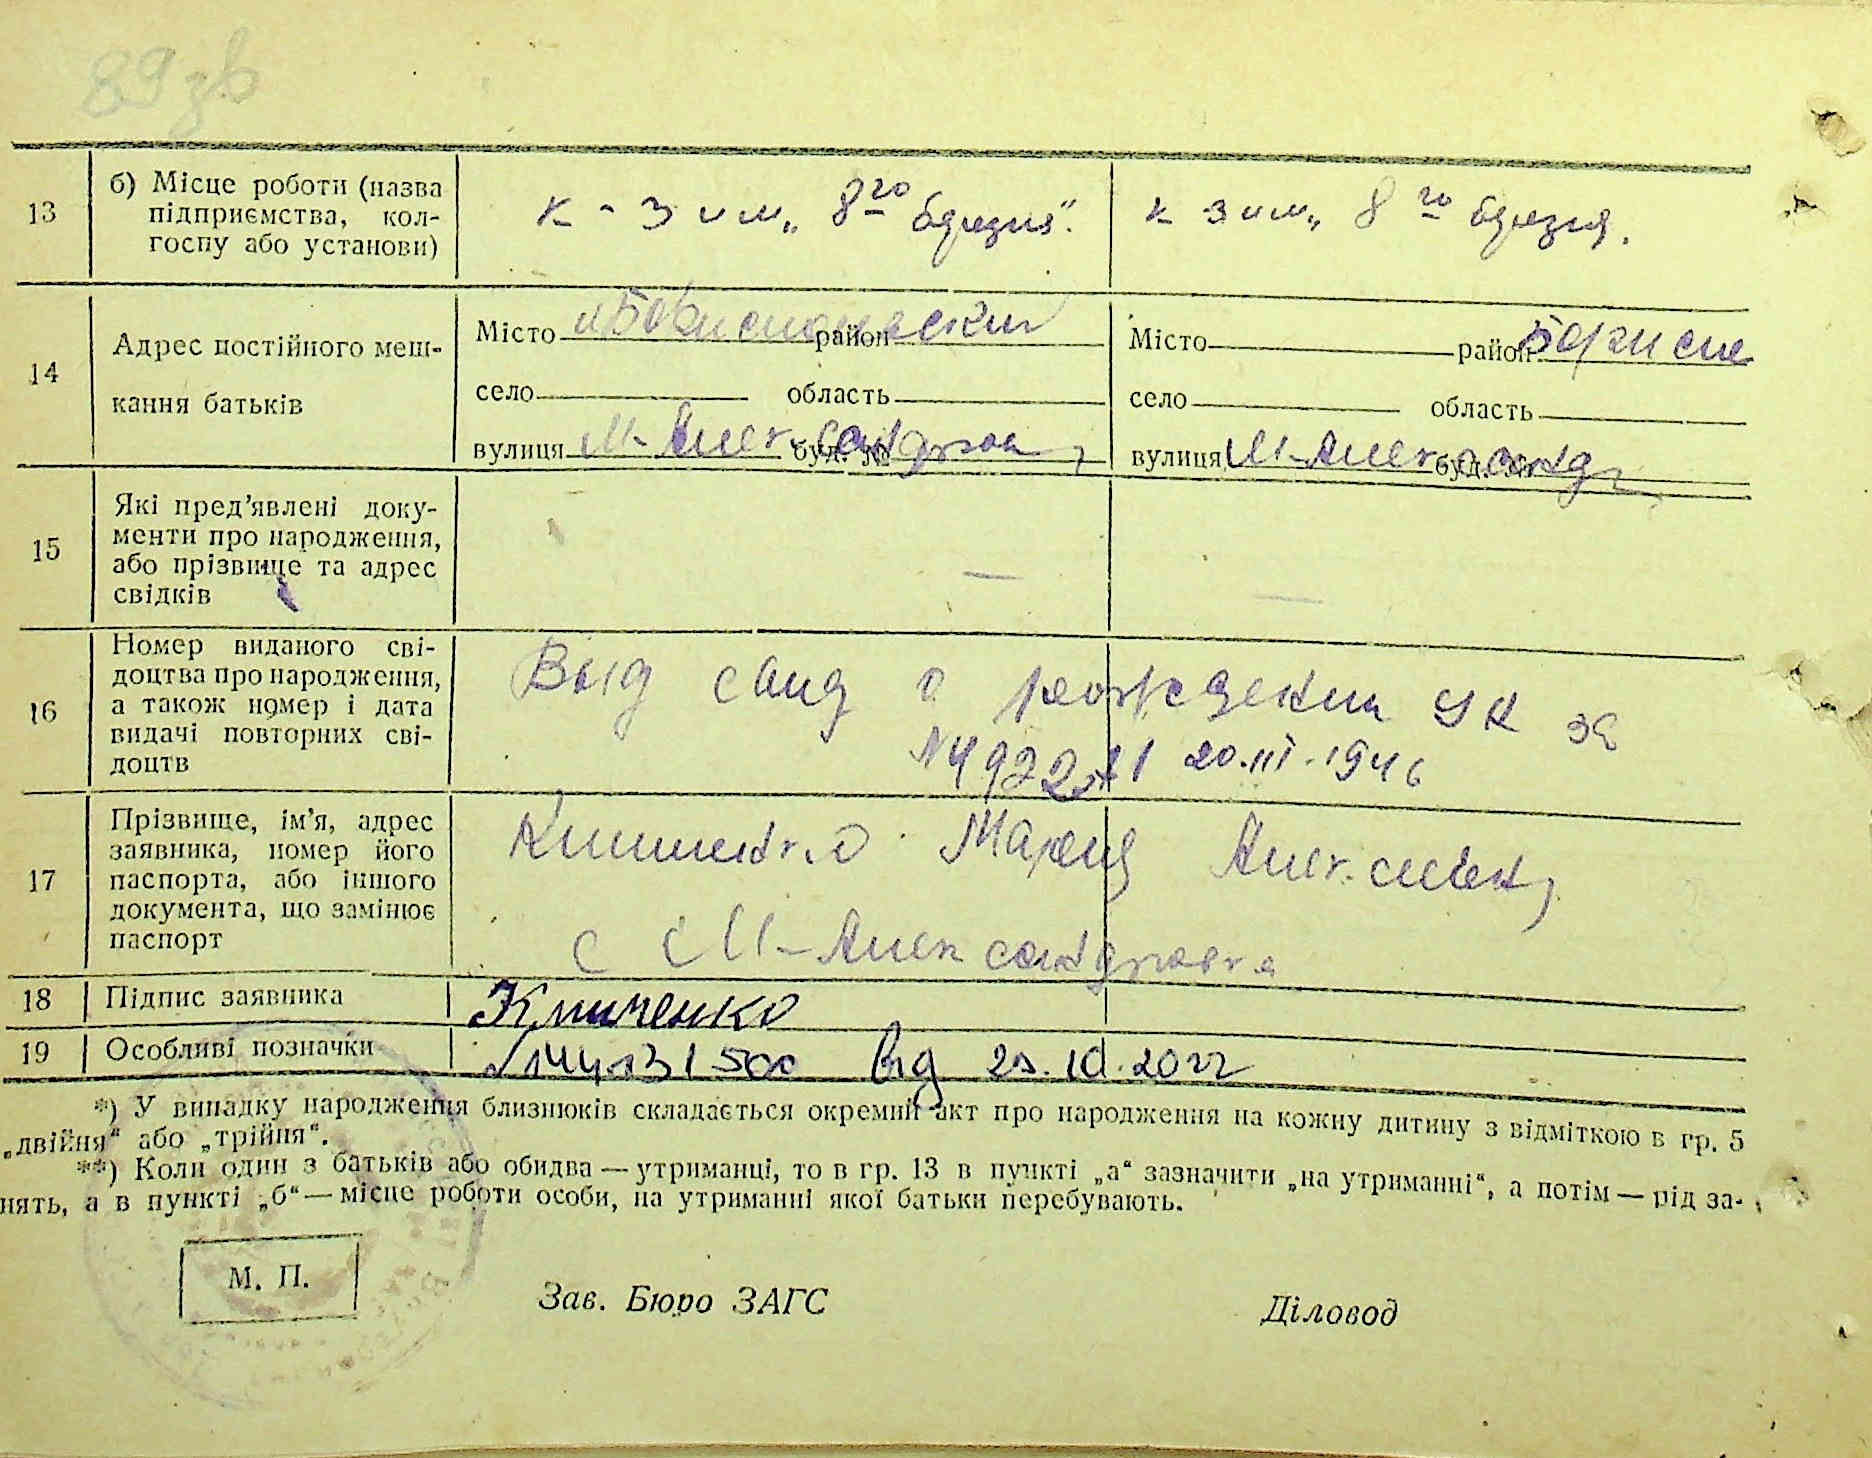 89 зв
13 б) Місце роботи (назва підприємства, кол-госпу або установи)
к-з им. „8го березня". к-з им. „8го березня.
14 Адрес постійного меш-
кання батьків
Місто район Місто район
село область село область
вулиця М-Александровка, буд. № вулиця М-Александр буд. №
15 Які пред'явлені доку-
менти про народження,
або прізвище та адрес
свідків
16 Номер виданого сві-
доцтва про народження,
а також номер і дата
видачі повторних сві-
доцтв
Выд свид о рождении УК
20.III.1946
17 Прізвище, ім'я, адрес
заявника, номер його
паспорта, або іншого
документа, що замінює
паспорт
Мария Алексеевн,
с М-Александровка
18 Підпис заявника Кличенко
19 Особливі позначки від 10.2022
*) У випадку народження близнюків складається окремий акт про народження на кожну дитину з відміткою в гр. 5
„двійня" або „трійня".
**) Коли один з батьків або обидва — утриманці, то в гр. 13 в пункті „а" зазначити „на утриманні", а потім — рід за-
нять, а в пункті „б" — місце роботи особи, на утриманні якої батьки перебувають.
М. П.
Зав. Бюро ЗАГС Діловод